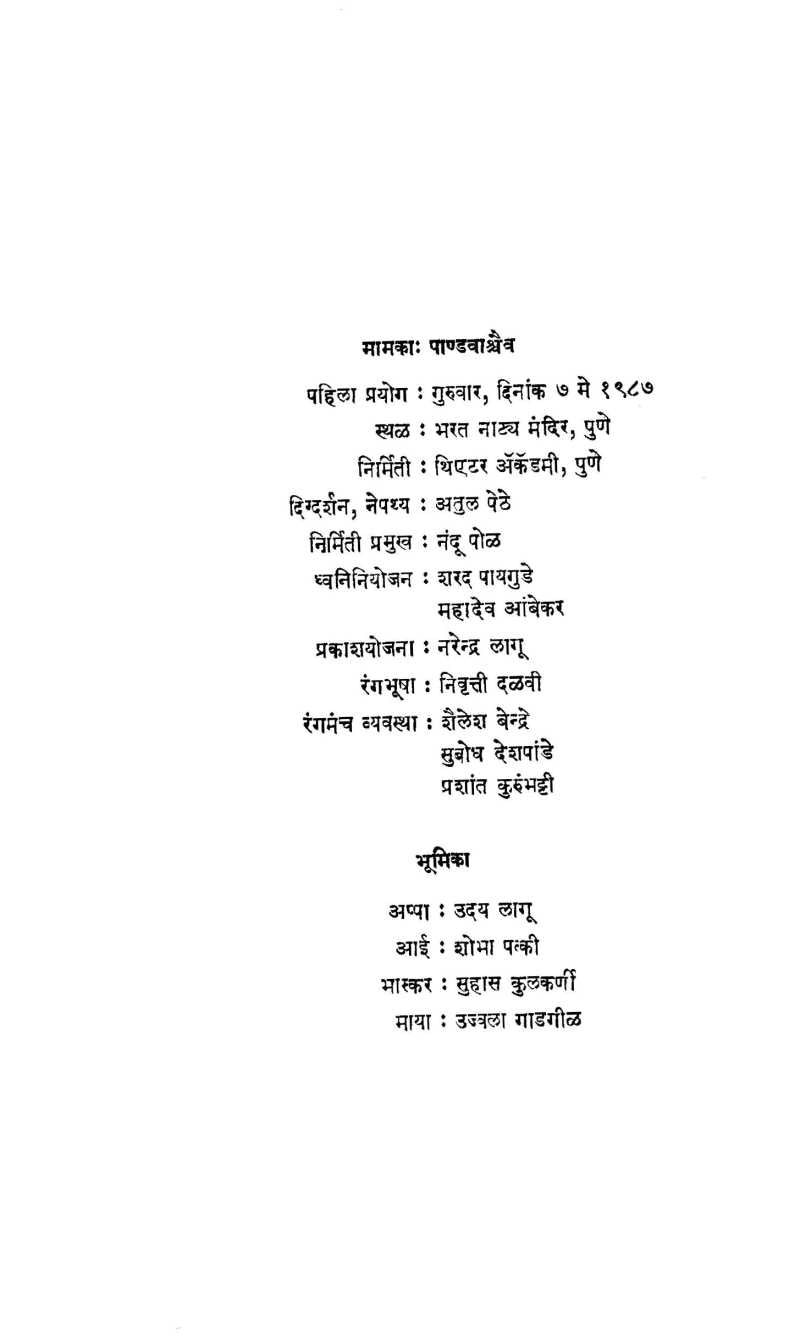 मामकाः पाण्डवाश्चैव
पहिला प्रयोग : गुरुवार, दिनांक ७ मे १९८७
स्थळ : भरत नाट्य मंदिर, पुणे
निर्मिती : थिएटर ॲकॅडमी, पुणे
दिग्दर्शन, नेपथ्य : अतुल पेठे
निर्मिती प्रमुख : नंदू पोळ
ध्वनिनियोजन : शरद पायगुडे
महादेव आंबेकर
प्रकाशयोजना : नरेन्द्र लागू
रंगभूषा : निवृत्ती दळवी
रंगमंच व्यवस्था : शैलेश बेन्द्रे
सुबोध देशपांडे
प्रशांत कुरुंभट्टी
भूमिका
अप्पा : उदय लागू
आई : शोभा पत्की
भास्कर : सुहास कुलकर्णी
माया : उज्वला गाडगीळ